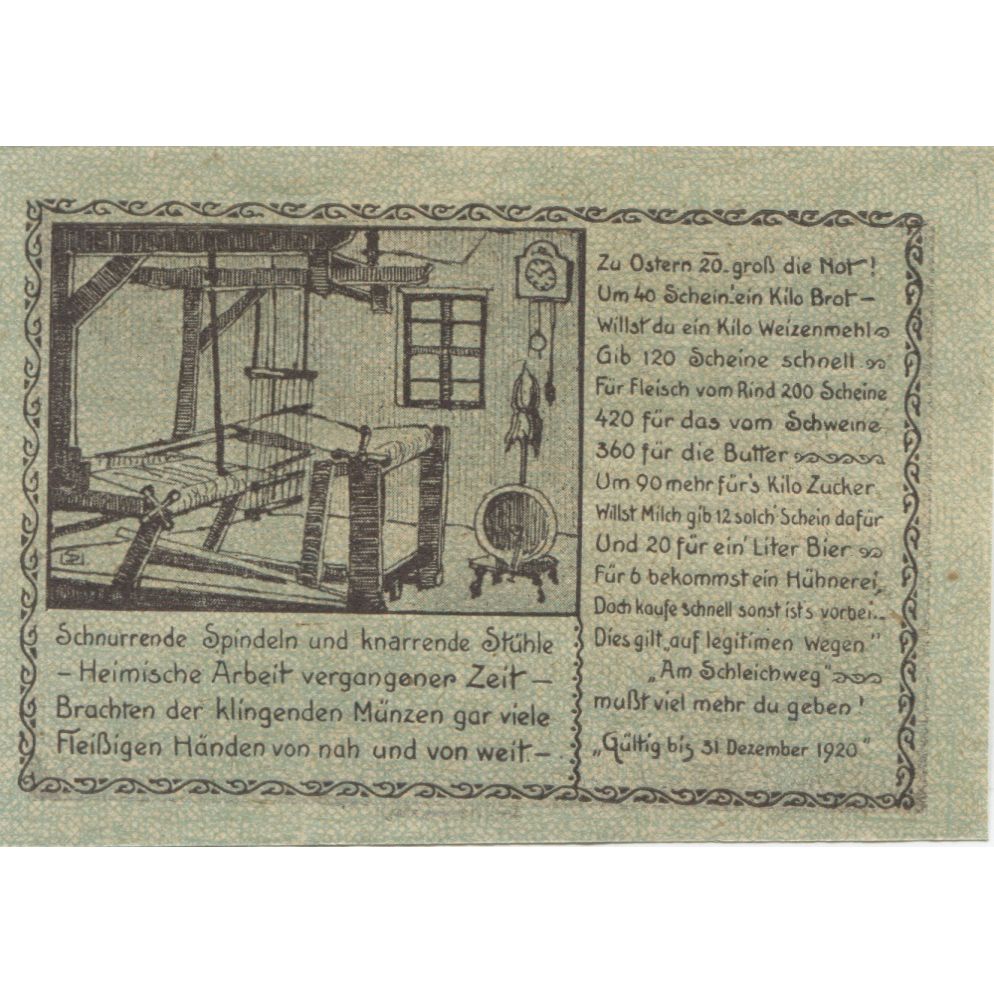 Zu Ostern 20. groß die Not!
Um 40 Schein' ein Kilo Brot –
Willst du ein Kilo Weizenmehl
Gib 120 Scheine schnell
Für Fleisch vom Rind 200 Scheine
420 für das vom Schweine
360 für die Butter
Um 90 mehr für's Kilo Zucker
Willst Milch gib 12 solch' Schein dafür
Und 20 für ein' Liter Bier
Für 6 bekommst ein Hühnerei,
Doch kaufe schnell sonst ist's vorbei..
Dies gilt „auf legitimen Wegen"
„Am Schleichweg"
mußt viel mehr du geben!
„Gültig bis 31 Dezember 1920."
Schnurrende Spindeln und knarrende Stühle
– Heimische Arbeit vergangener Zeit –
Brachten der klingenden Münzen gar viele
Fleißigen Händen von nah und von weit. –